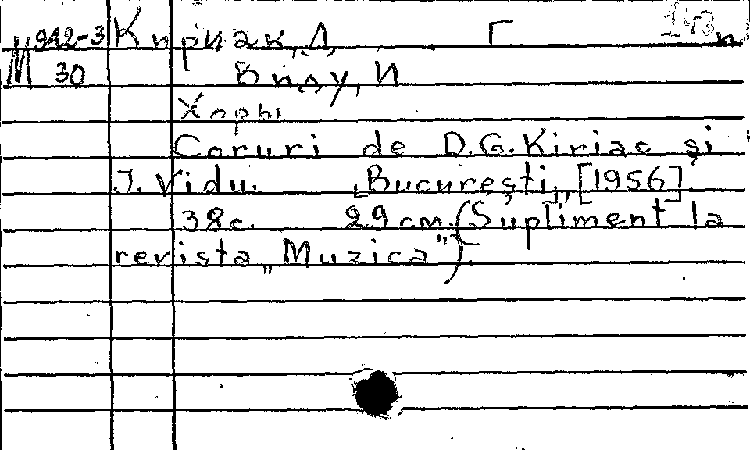 М 942-3 Кириак, Д. Г 143
30 Виду, И
Хоры
Coruri de D.G.Kiriac și
J. Vidu. București, [1956]
38с. 29см. (Supliment la
revista „Muzica").